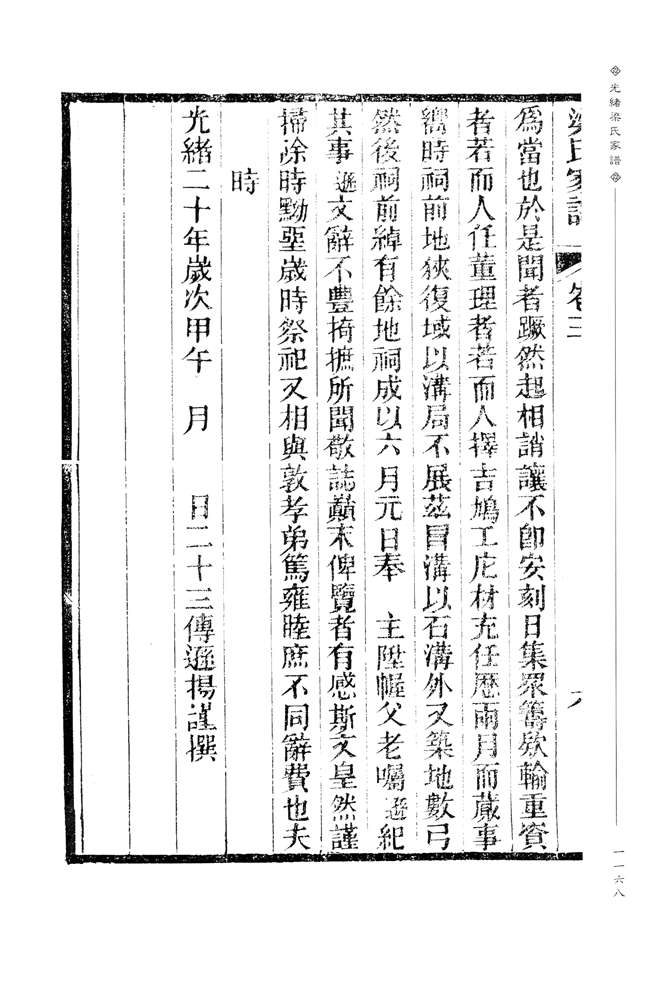 光緒梁氏家譜
一一六八
梁氏家譜 卷三 六
爲當也於是聞者蹶然起相誚讓不卽安刻日集眾籌欵輪重資
者若而人任董理者若而人擇吉鳩工庀材充任歷兩月而蕆事
嚮時祠前地狹復域以溝局不展茲冒溝以石溝外又築地數弓
然後祠前綽有餘地祠成以六月元日奉 主陞幄父老囑遜紀
其事遜文辭不豊掎摭所聞敬誌巔末俾覽者有感斯文皇然謹
掃涂時黝堊歲時祭祀又相與敦孝弟篤雍睦庶不同辭費也夫
時
光緒二十年歲次甲午 月 日二十三傳遜揚謹撰